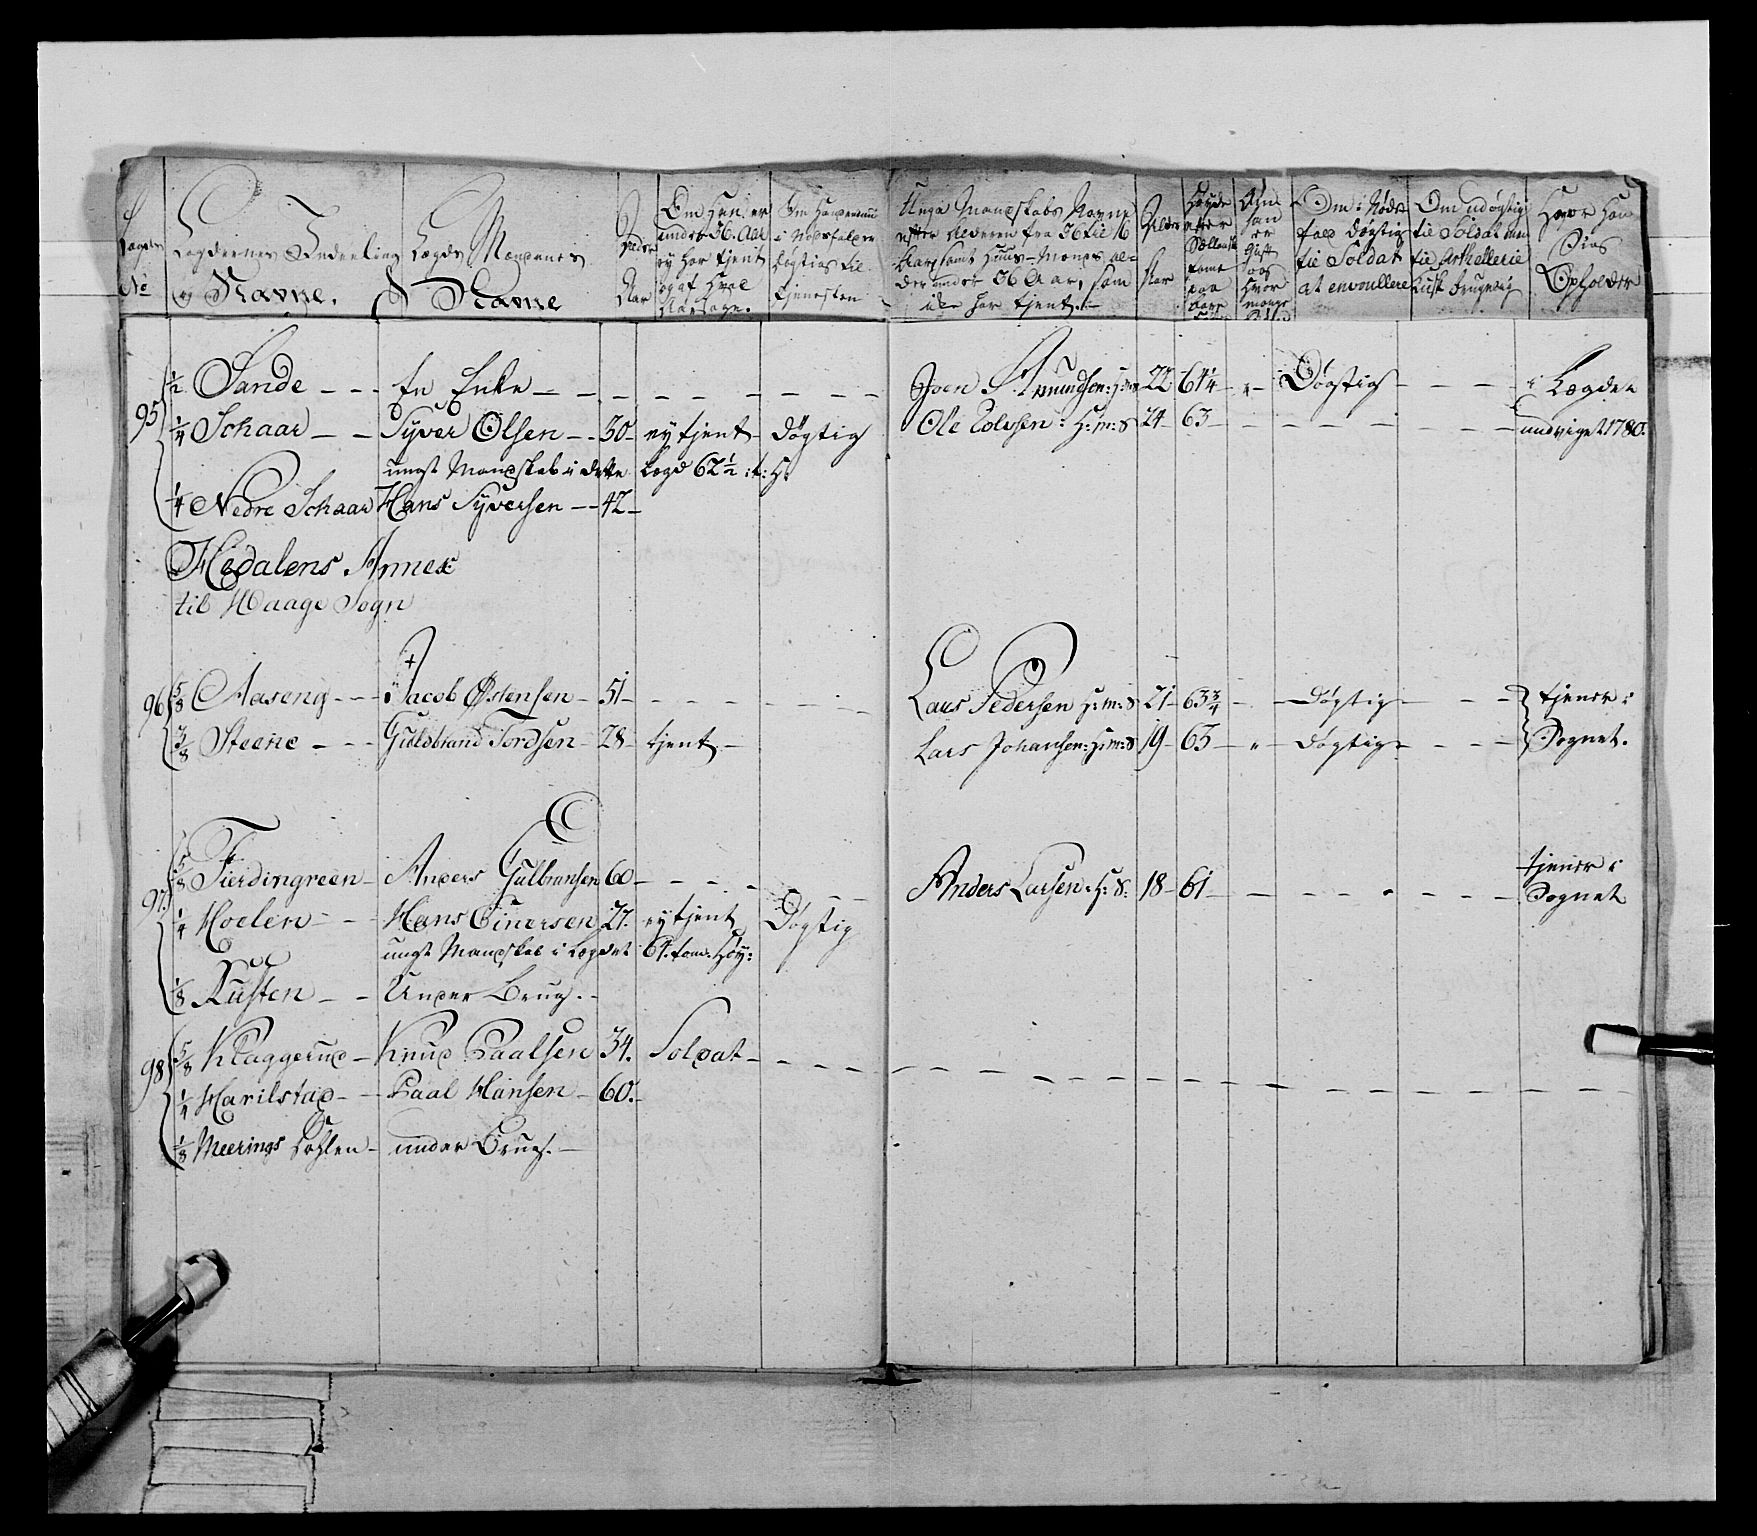 Lægdets No
Lægdernes Indeeling og Navne.
Lægds Mændenes Navne
Alder Aar
Om Hand er under 36 Aar ey har tjent og af hvad Aarsage.
Om Hand i Nødsfald er døgtig til Tienesten
Unge Mandskabs Navne efter Alderen fra 36 til 16 Aar, samt Huus-Mænds al- der under 36 Aar, som ikke har tjent.
Alder Aar
Høyde efter Sællandsk
Om han er Gift og hvor mange
Om i Nøds fald døgtig til Soldat at enroullere
Om udøgtig til Soldat men til Artellerie Kusk brugelig
Hvor Han Sig Opholder
95 1/2 Sande - - - En Enke - - - Joen Amundsen: H:m: 22 64 1/4 - " - Døgtig - - - i Lægdet
1/4 Schaar - - Syver Olsen - - 30 - ey tjent - døgtig Ole Colesen: H:m:S 24 - 63 - - - - undviget 1780.
ungt Mandskab i dette Lægd 62 1/2 :t: H:
1/4 Nedre Schaar Hans Syversen - - 42 -
Hedalens Annex
til Waage Sogn
96 5/8 Aaseng - - - + Jacob Østensen - 51 - - - - Lars Pedersen H:m:S 21 - 63 3/4 - - døgtig - - - tjener i
3/8 Steene - - - Guldbrand Tordsen - 28 - tjent - Lars Johansen: H:m:S 19 - 63 - " - døgtig - - - Sognet.
97. 5/8 Fierdingreen - Anders Gulbransen 60 - - - - Anders Larsen: H: S: 18 - 61 - - - - tjener i Sognet
1/4 Hoelen - - - Hans Einersen 27. ey tjent Døgtig
ungt Mandskab i Lægdet 61. tom: Høy:
1/8 Rusten - - - Under Brug. -
98 5/8 Klaggerud - Knud Paalsen 34. Soldat - - - -
1/4 Harilstad - - Paal Hansen - 60. -
1/8 Meerings Dahlen - under Brug. -